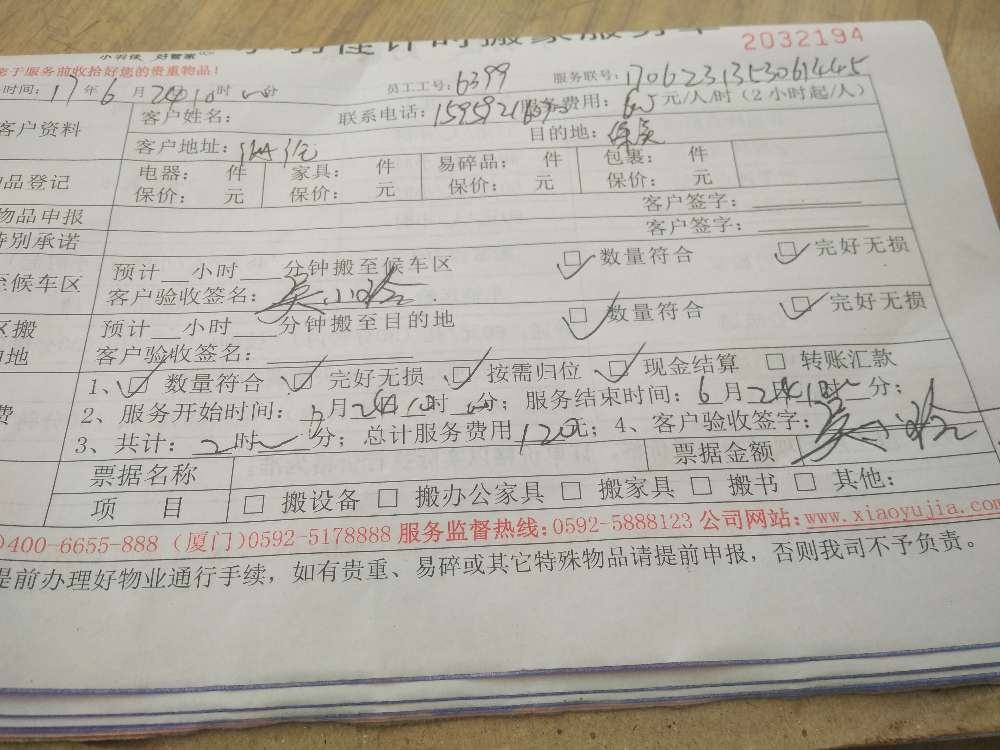 小羽佳 好管家
时搬家服务单
2032194
您于服务前收拾好您的贵重物品!
时间: 17年6月24日10时 分 员工工号: 6399 服务联号: 170623135306144445
客户资料 客户姓名: 联系电话: 服务费用: 60元/人/时(2小时起/人)
客户地址: 目的地:
品登记 电器: 件 家具: 件 易碎品: 件 包裹: 件
保价: 元 保价: 元 保价: 元 保价: 元
物品申报 客户签字:
特别承诺 客户签字:
至候车区 预计 小时 分钟搬至候车区 数量符合 完好无损
客户验收签名:
区搬 预计 小时 分钟搬至目的地 数量符合 完好无损
地 客户验收签名:
1、 数量符合 完好无损 按需归位 现金结算 转账汇款
费 2、服务开始时间: 月24日10时 分; 服务结束时间: 6月24日 时 分;
3、共计: 2时 分; 总计服务费用120元; 4、客户验收签字:
票据名称 票据金额
项 目 搬设备 搬办公家具 搬家具 搬书 其他:
400-6655-888 (厦门)0592-5178888 服务监督热线:0592-5888123 公司网站:www.xiaoyujia.com
提前办理好物业通行手续,如有贵重、易碎或其它特殊物品请提前申报,否则我司不予负责。